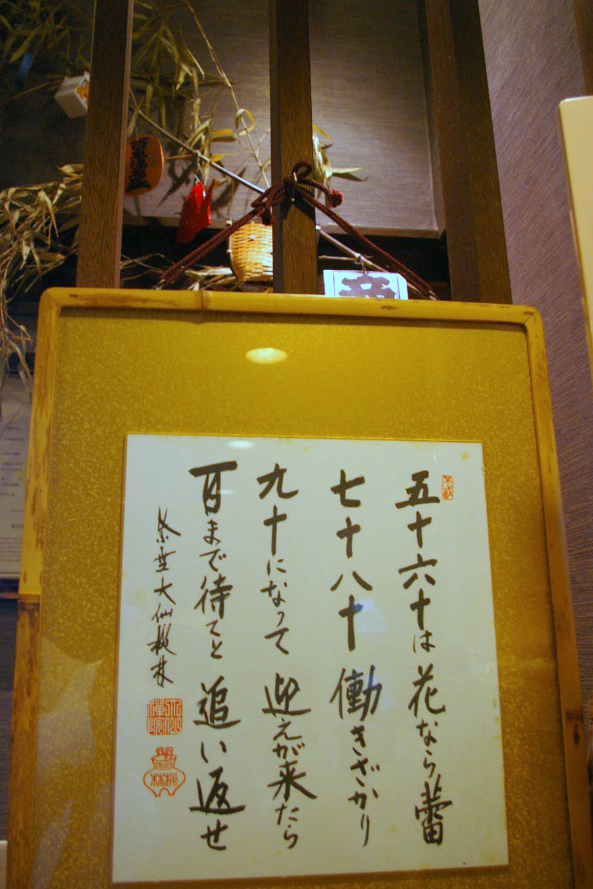 五十六十は 花なら蕾
七十八十 働きざかり
九十になって 迎えが来たら
百まで待てと 追い返せ